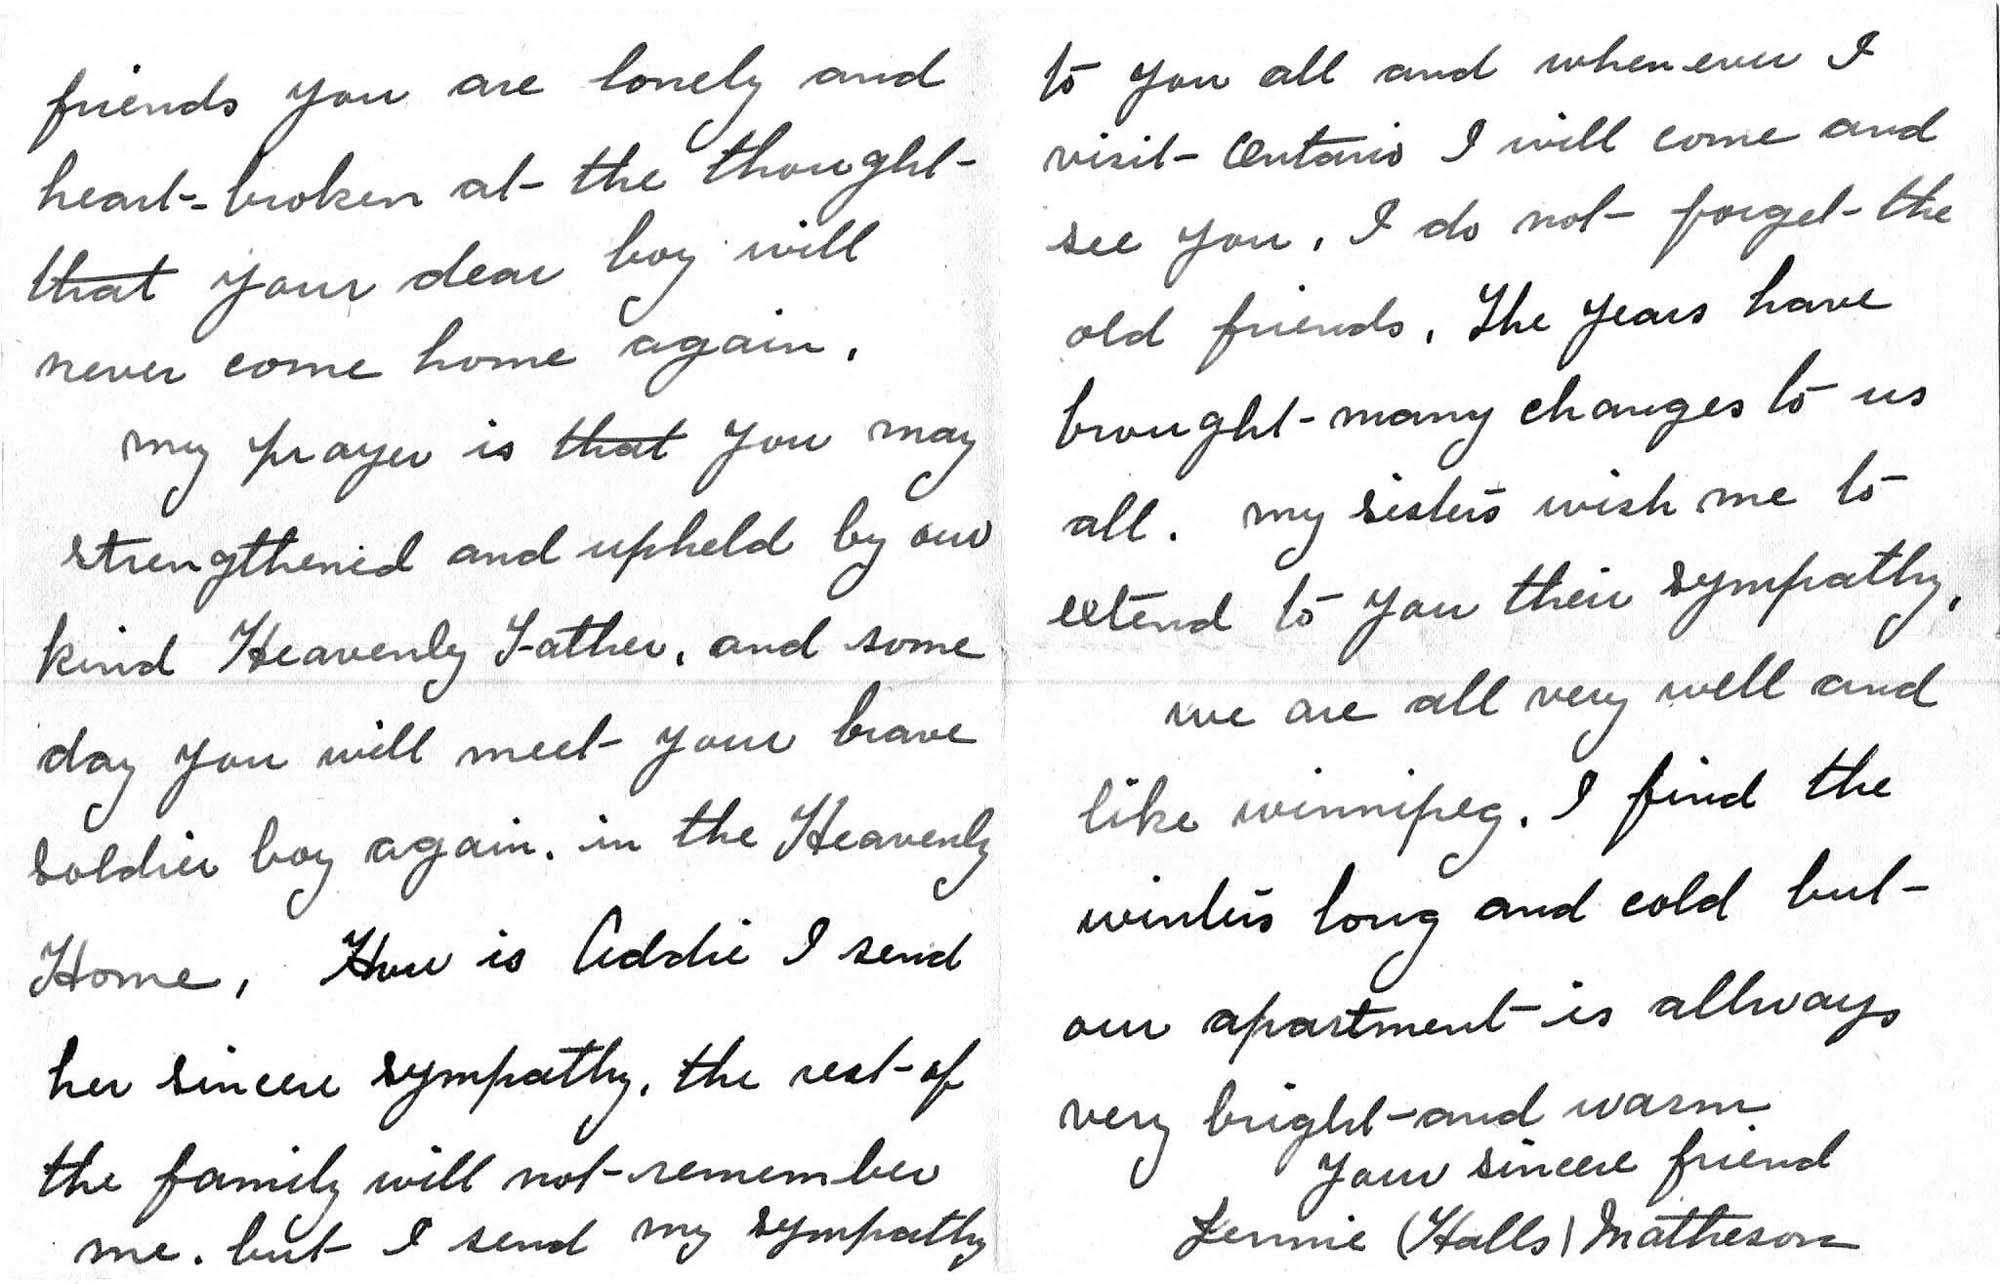 friends you are lonely and
heart-broken at the thought
that your dear boy will
never come home again.
my prayer is that you may
strengthened and upheld by our
kind Heavenly Father, and some
day you will meet your brave
soldier boy again. in the Heavenly
Home, How is Addie I send
her sincere sympathy. the rest of
the family will not remember
me. but I send my sympathy
to you all and whenever I
visit Ontario I will come and
see you. I do not forget the
old friends. The years have
brought many changes to us
all. my sisters wish me to
extend to you their sympathy.
we are all very well and
like winnipeg. I find the
winters long and cold but
our apartment is allways
very bright and warm
Your sincere friend
Jennie (Halls) Matheson